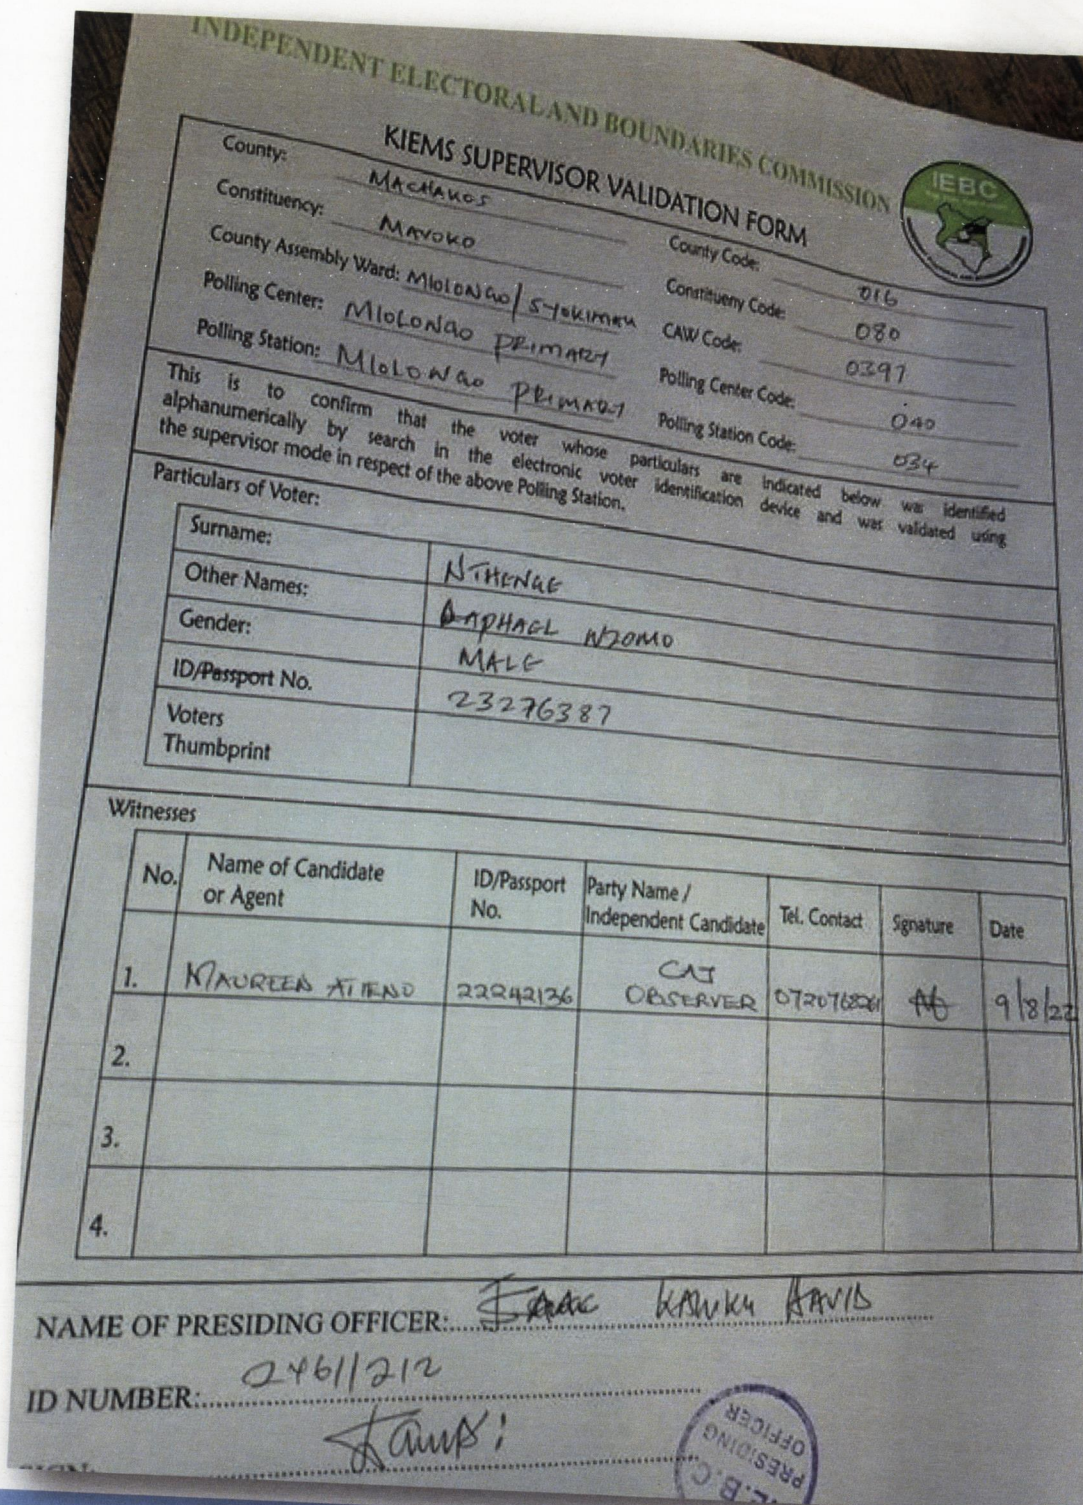 INDEPENDENT ELECTORAL AND BOUNDARIES COMMISSION
IEBC
KIEMS SUPERVISOR VALIDATION FORM
County: MACHAKOS County Code: 016
Constituency: MAVOKO Constitueny Code: 080
County Assembly Ward: MlOLONGO/SYOKIMAU CAW Code: 0397
Polling Center: MlOLONGO PRIMARY Polling Center Code: 040
Polling Station: MlOLONGO PRIMARY Polling Station Code: 034
This is to confirm that the voter whose particulars are indicated below was identified
alphanumerically by search in the electronic voter identification device and was validated using
the supervisor mode in respect of the above Polling Station.
Particulars of Voter:
Surname: NTHENGE
Other Names: RAPHAEL NZOMO
Gender: MALE
ID/Passport No. 23276387
Voters
Thumbprint
Witnesses
No. Name of Candidate
or Agent ID/Passport
No. Party Name /
Independent Candidate Tel. Contact Signature Date
1. MAUREEN ATIENO 22242136 CAJ
OBSERVER 0720768261 9/8/22
2.
3.
4.
NAME OF PRESIDING OFFICER: ISAAC DAVID
ID NUMBER: 24611212
I.E.B.C.
PRESIDING
OFFICER